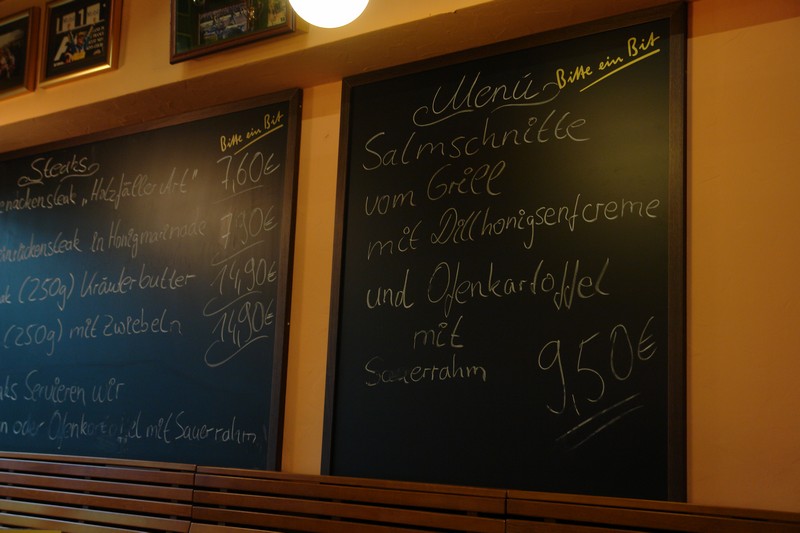 Bitte ein Bit
Steaks
"Holzfäller Art" 7,60€
in Honigmarinade 7,90€
(250g) Kräuterbutter 14,90€
(250g) mit Zwiebeln 14,90€
Servieren wir
oder Ofenkartoffel mit Sauerrahm
Bitte ein Bit
Menü
Salmschnitte
vom Grill
mit Dillhonigsenfcreme
und Ofenkartoffel
mit
Sauerrahm 9,50€